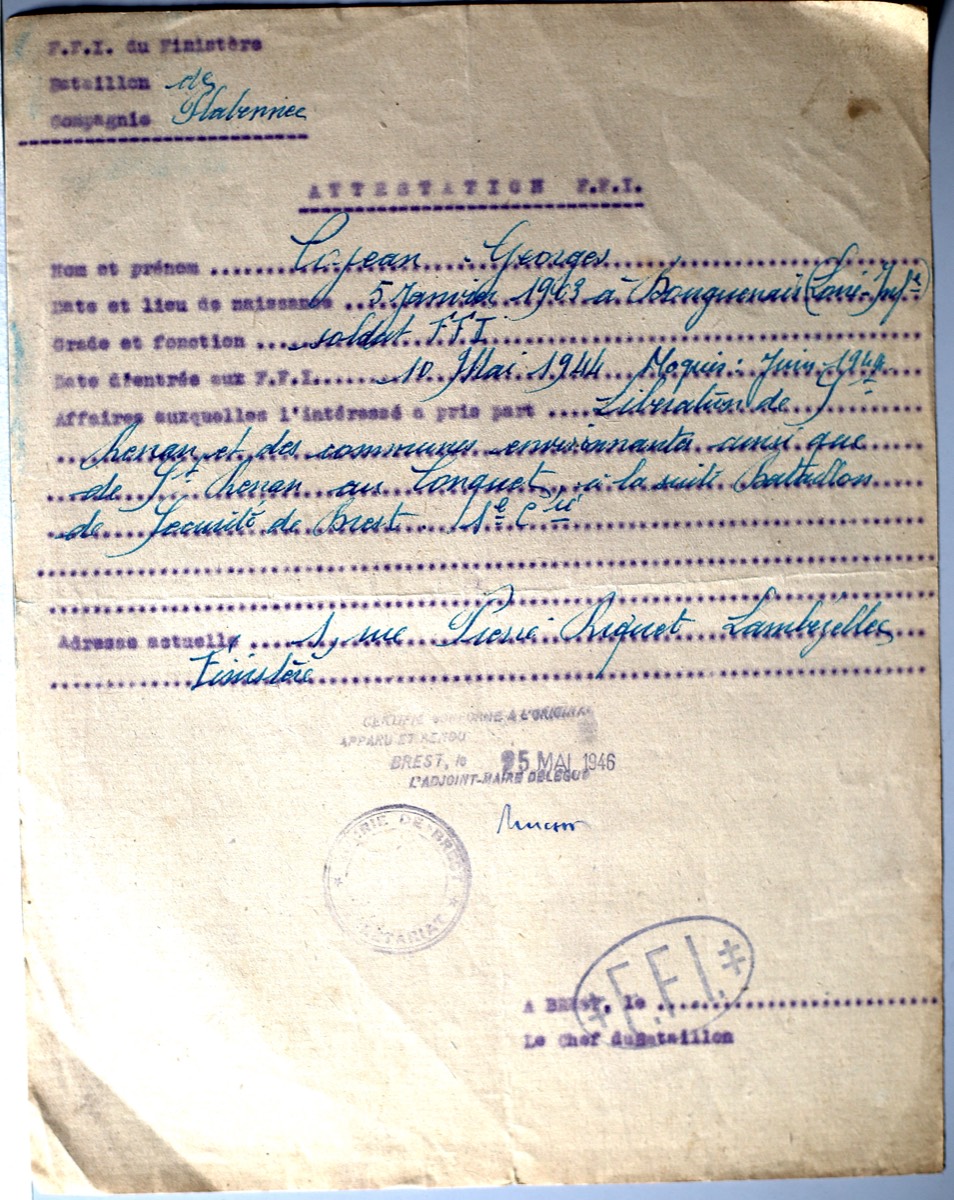 F.F.I. du Finistère
Bataillon de
Compagnie Plabennec
ATTESTATION F.F.I.
Nom et prénom Georges
Date et lieu de naissance 5 Janvier à Bouguenais (Loire-Infre)
Grade et fonction soldat FFI
Date d'entrée aux F.F.I. 10 Mai 1944 Maquis: Juin 1944
Affaires auxquelles l'intéressé a pris part Libération de St
Renan et des communes environnantes ainsi que
de St Renan au Conquet, à la suite Bataillon
de Sécurité de Brest. 1e Cie
Adresse actuelle 1, rue Pierre Riquet Lambézellec
Finistère
CERTIFIÉ CONFORME A L'ORIGINAL
APPARU ET RENDU
BREST, le 25 MAI 1946
L'ADJOINT-MAIRE DÉLÉGUÉ
MAIRIE DE BREST
SECRÉTARIAT
F.F.I.
A BREST, le
Le Chef du Bataillon